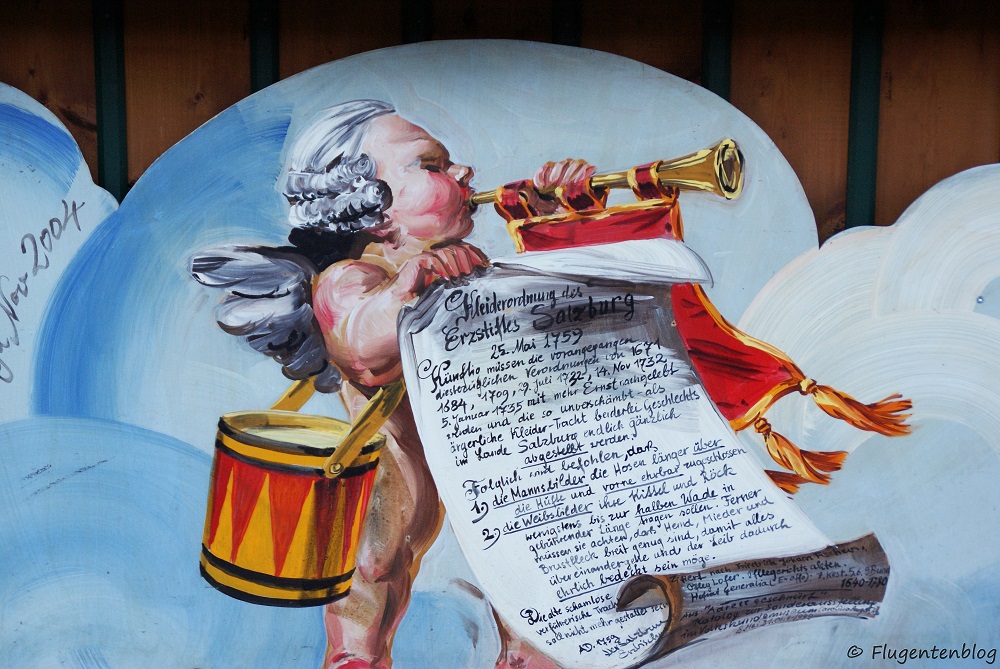 Nov 2004
Kleiderordnung des
Erzstiftes Salzburg
25. Mai 1759
Künftig müssen die vorangegangen
diesbezüglichen Verordnungen von 1671
1684, 1709, 29. Juli 1722, 14. Nov 1732,
5. Januar 1735 mit mehr Ernst nachgelebt
werden und die so unverschämt- als
ärgerliche Kleider-Tracht beiderlei Geschlechts
im Lande Salzburg endlich gänzlich
abgestellt werden.
Folglich wird befohlen, daß
1.) die Mannsbilder die Hosen länger über
die Hüfte und vorne ehrbar zugeschlossen
2.) die Weibsbilder ihre Kittel und Röck
wenigstens bis zur halben Wade in
gebührender Länge tragen sollen. Ferner
müssen sie achten, daß Hemd, Mieder und
Brustfleck breit genug sind, damit alles
übereinandergehe und der Leib dadurch
ehrlich bedeckt sein möge.
Die alte schamlose
verführerische Tracht
soll nicht mehr gestattet sein
AD. 1759
Pfleg Lofer. Pflegerichtsakten
1640-1790
© Flugentenblog